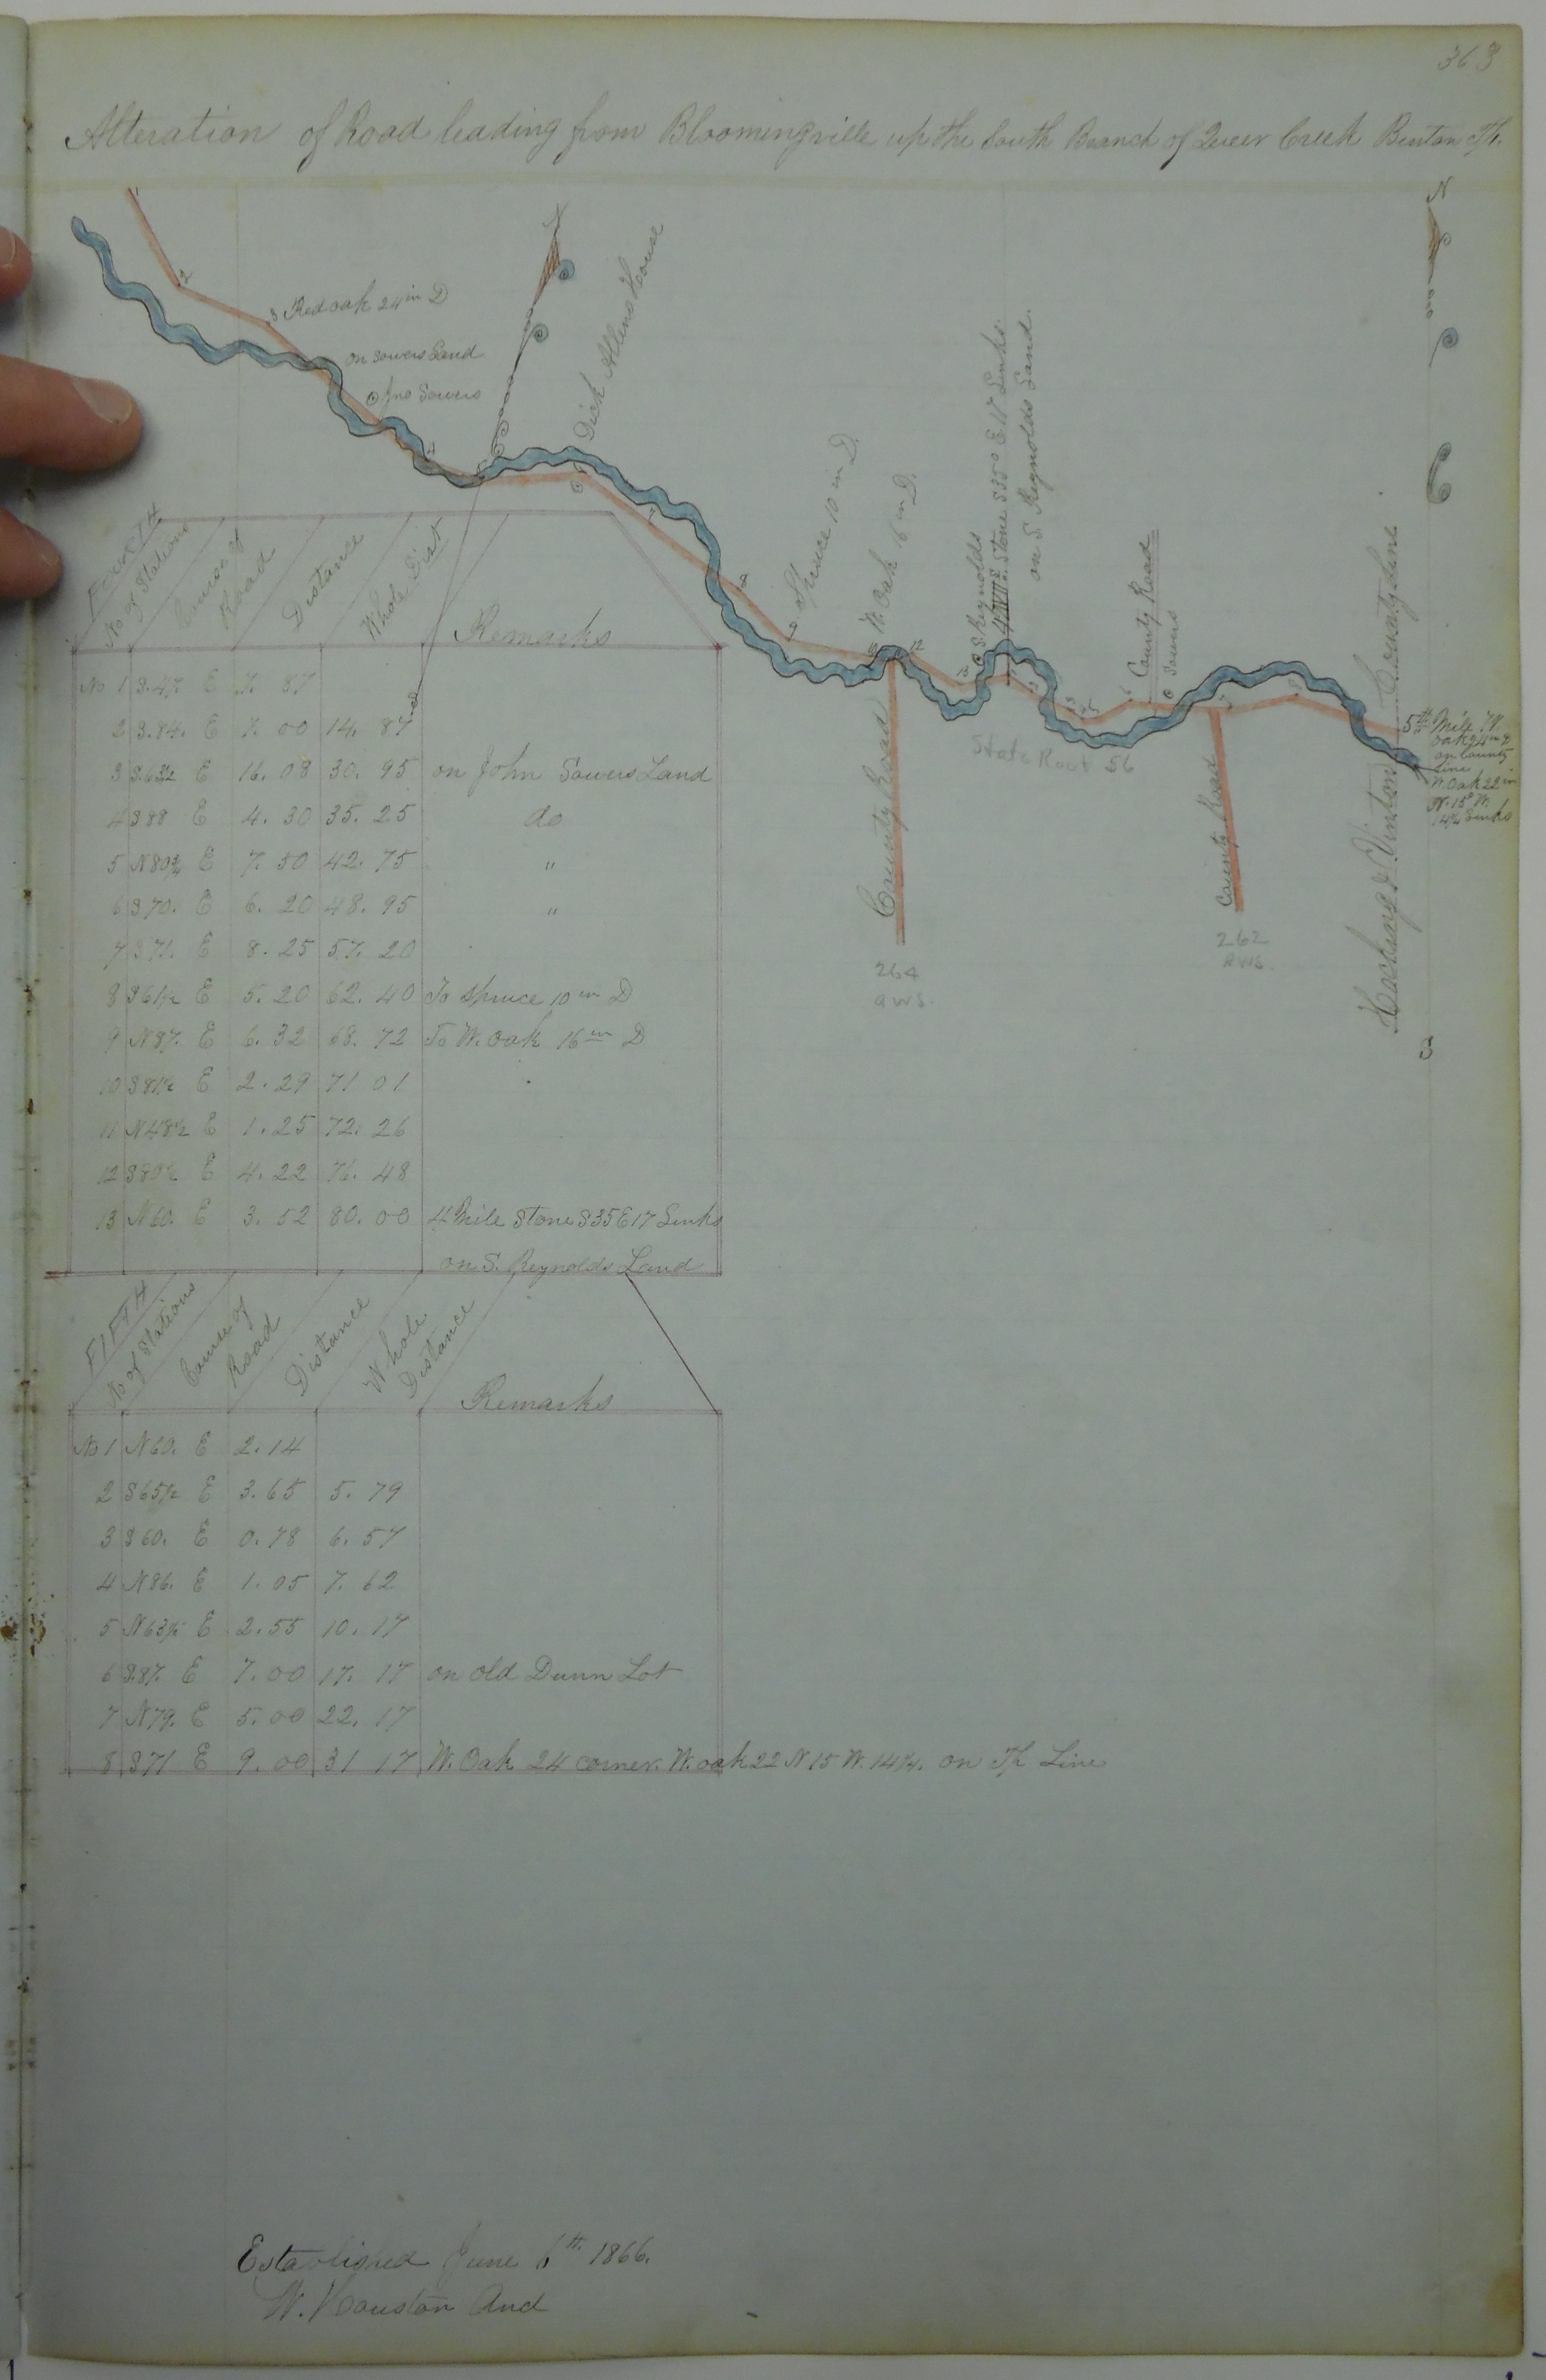 363
Alteration of Road leading from Bloomingville up the South Branch of Queer Creek Benton Tp.
N
1
2
3 Red oak 24 in D
on Sowers Land
Jno Sowers
4
5
Dick Allens House
7
8
9 Spruce 10 in D.
W. Oak 16 in D.
12
S Reynolds
Stone S35° E 17 Links
on S. Reynolds Land.
State Rout 56
County Road
Sowers
County Road
264
aws.
County Road
262
AWS.
Hocking & Vinton County Line
5th Mile W.
oak 24 in D
on County
Line
W. Oak 22 in
N. 15° W.
14¼ Links
FOURTH
No of Stations
Course of Road
Distance
Whole Dist
Remarks
No 1 S.47. E 7. 87
2 S.84. E 7. 00 14. 87
3 S.63½ E 16. 08 30. 95 on John Sowers Land
4 S88 E 4. 30 35. 25 do
5 N80¾ E 7. 50 42. 75 "
6 S70. E 6. 20 48. 95 "
7 S71. E 8. 25 57. 20
8 S61½ E 5. 20 62. 40 To Spruce 10 in D
9 N87. E 6. 32 68. 72 To W. Oak 16 in D
10 S81½ E 2. 29 71 01
11 N48½ E 1. 25 72. 26
12 S80½ E 4. 22 76. 48
13 N60. E 3. 52 80. 00 4 Mile Stone S35E17 Links
on S. Reynolds Land
FIFTH
No of Stations
Course of Road
Distance
Whole Distance
Remarks
No 1 N60. E 2. 14
2 S65½ E 3. 65 5. 79
3 S60. E 0. 78 6. 57
4 N86. E 1. 05 7. 62
5 N63½ E 2. 55 10. 17
6 S.87. E 7. 00 17. 17 on old Dunn Lot
7 N79. E 5. 00 22. 17
8 S71 E 9. 00 31 17 W. Oak 24 corner. W. oak 22 N 15 W. 14¼. on Tp Line
Established June 6th 1866.
W. Houston Aud